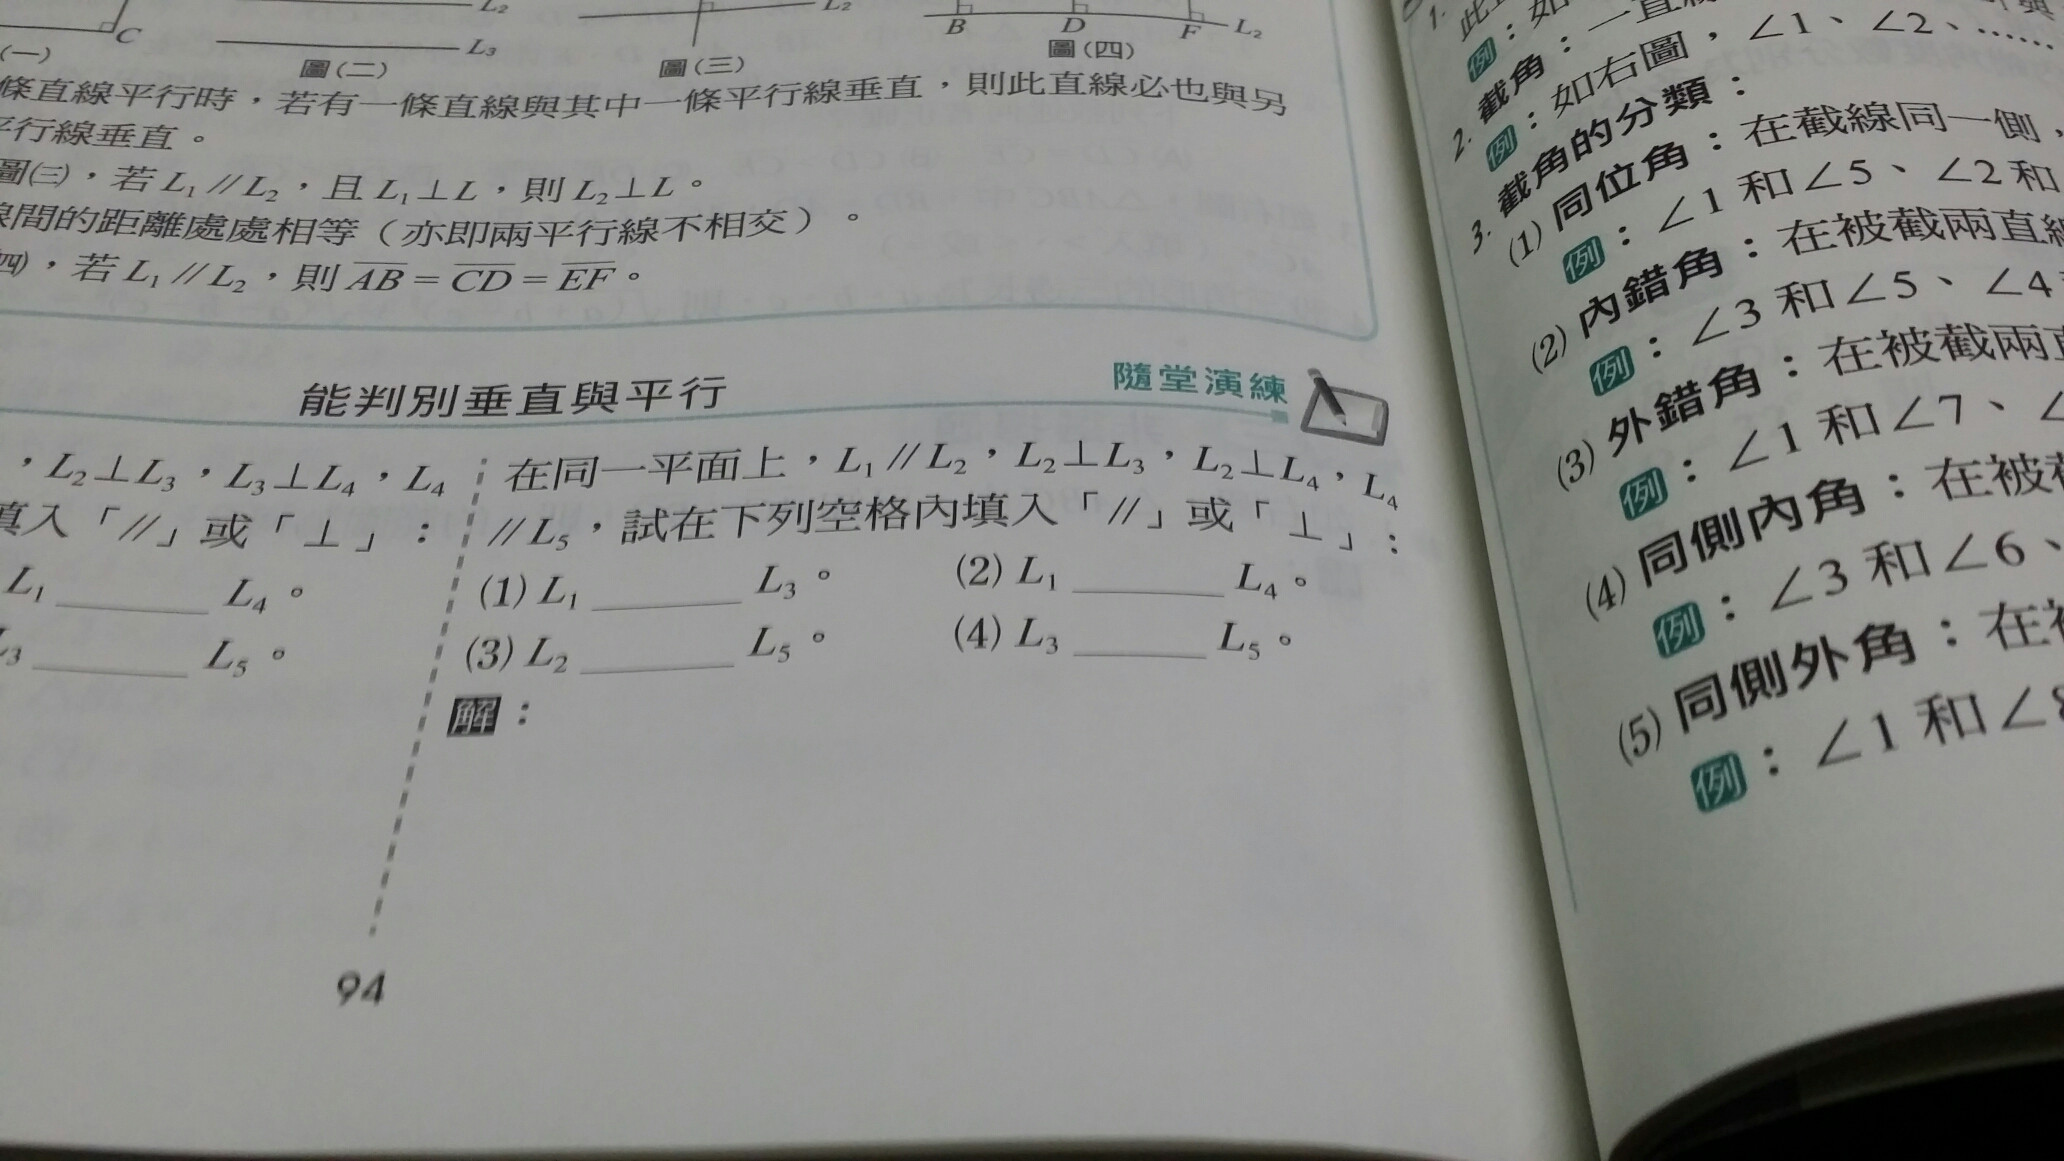 C
L₂
L₃
(一)
圖(二)
L₂
圖(三)
B D F L₂
圖(四)
條直線平行時，若有一條直線與其中一條平行線垂直，則此直線必也與另
平行線垂直。
圖㈢，若 L₁∥L₂，且 L₁⊥L，則 L₂⊥L。
線間的距離處處相等（亦即兩平行線不相交）。
㈣，若 L₁∥L₂，則 AB = CD = EF。
能判別垂直與平行
隨堂演練
，L₂⊥L₃，L₃⊥L₄，L₄
填入「∥」或「⊥」：
L₁ ______ L₄。
L₃ ______ L₅。
在同一平面上，L₁∥L₂，L₂⊥L₃，L₂⊥L₄，L₄
∥L₅，試在下列空格內填入「∥」或「⊥」：
(1) L₁ ______ L₃。 (2) L₁ ______ L₄。
(3) L₂ ______ L₅。 (4) L₃ ______ L₅。
解：
94
1.
例：如
2. 截角：一直線
例：如右圖，∠1、∠2、……
3. 截角的分類：
(1) 同位角：在截線同一側，
例：∠1 和∠5、∠2 和
(2) 內錯角：在被截兩直線
例：∠3 和∠5、∠4
(3) 外錯角：在被截兩直
例：∠1 和∠7、∠
(4) 同側內角：在被截
例：∠3 和∠6、
(5) 同側外角：在被
例：∠1 和∠8